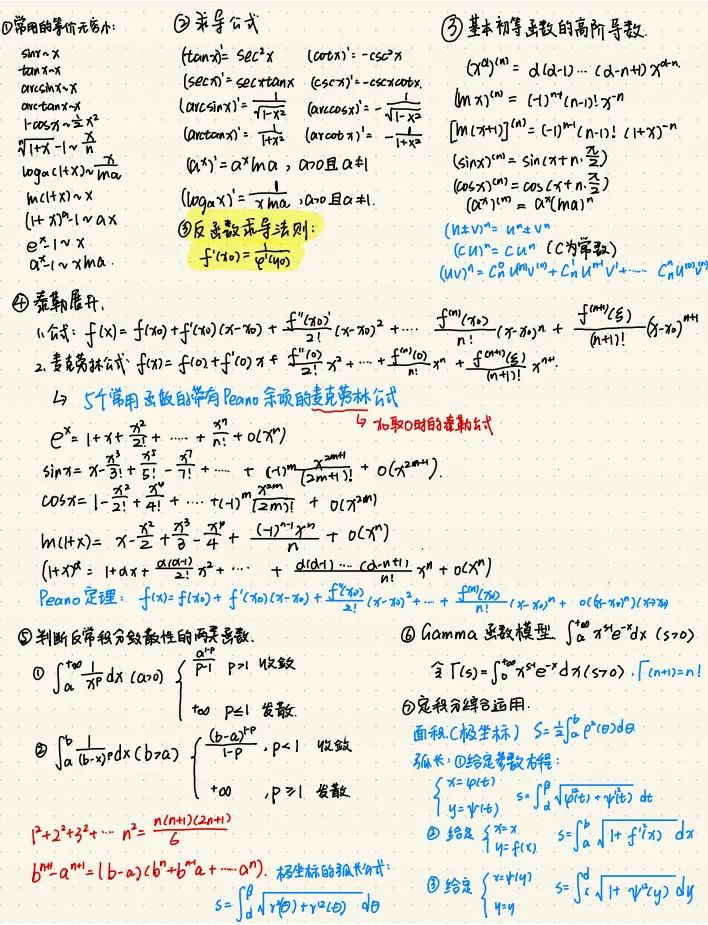 ①常用的等价无穷小:
sinx~x
tanx~x
arcsinx~x
arctanx~x
1-cosx~½x²
ⁿ√(1+x)-1~x/n
logₐ(1+x)~x/lna
ln(1+x)~x
(1+x)ᵅ-1~αx
eˣ-1~x
aˣ-1~xlna
②求导公式
(tanx)'=sec²x (cotx)'=-csc²x
(secx)'=secxtanx (cscx)'=-cscxcotx
(arcsinx)'=1/√(1-x²) (arccosx)'=-1/√(1-x²)
(arctanx)'=1/(1+x²) (arcotx)'=-1/(1+x²)
(aˣ)'=aˣlna, a>0且a≠1
(logₐx)'=1/(xlna), a>0且a≠1.
③反函数求导法则:
f'(x₀)=1/φ'(y₀)
③基本初等函数的高阶导数.
(xᵅ)⁽ⁿ⁾=α(α-1)…(α-n+1)x^(α-n)
(lnx)⁽ⁿ⁾=(-1)ⁿ⁻¹(n-1)!x⁻ⁿ
[ln(x+1)]⁽ⁿ⁾=(-1)ⁿ⁻¹(n-1)!(1+x)⁻ⁿ
(sinx)⁽ⁿ⁾=sin(x+n·π/2)
(cosx)⁽ⁿ⁾=cos(x+n·π/2)
(aˣ)⁽ⁿ⁾=aˣ(lna)ⁿ
(u±v)ⁿ=uⁿ±vⁿ
(Cu)ⁿ=Cuⁿ (C为常数)
(uv)ⁿ=Cₙ⁰uⁿv⁽⁰⁾+Cₙ¹uⁿ⁻¹v'+…… Cₙⁿu⁽⁰⁾v⁽ⁿ⁾
④泰勒展开.
1.公式: f(x)=f(x₀)+f'(x₀)(x-x₀)+f''(x₀)/2!(x-x₀)²+…… f⁽ⁿ⁾(x₀)/n!(x-x₀)ⁿ+f⁽ⁿ⁺¹⁾(ξ)/(n+1)!(x-x₀)ⁿ⁺¹
2.麦克劳林公式: f(x)=f(0)+f'(0)x+f''(0)/2!x²+…+f⁽ⁿ⁾(0)/n!xⁿ+f⁽ⁿ⁺¹⁾(ξ)/(n+1)!xⁿ⁺¹.
↳ 5个常用函数的带有Peano余项的麦克劳林公式
↳ x₀取0时的泰勒公式
eˣ=1+x+x²/2!+……+xⁿ/n!+o(xⁿ)
sinx=x-x³/3!+x⁵/5!-x⁷/7!+……+(-1)ᵐx²ᵐ⁺¹/(2m+1)!+o(x²ᵐ⁺¹).
cosx=1-x²/2!+x⁴/4!+……+(-1)ᵐx²ᵐ/(2m)!+o(x²ᵐ)
ln(1+x)=x-x²/2+x³/3-x⁴/4+(-1)ⁿ⁻¹xⁿ/n+o(xⁿ)
(1+x)ᵅ=1+αx+α(α-1)/2!x²+……+α(α-1)……(α-n+1)/n!xⁿ+o(xⁿ)
Peano定理: f(x)=f(x₀)+f'(x₀)(x-x₀)+f''(x₀)/2!(x-x₀)²+…+f⁽ⁿ⁾(x₀)/n!(x-x₀)ⁿ+o((x-x₀)ⁿ)(x→x₀)
⑤判断反常积分敛散性的两类函数.
① ∫ₐ^{+∞} 1/xᵖ dx (a>0) { a^(1-p)/(p-1) p>1 收敛
+∞ p≤1 发散.
② ∫ₐᵇ 1/(b-x)ᵖ dx (b>a) { (b-a)^(1-p)/(1-p), p<1 收敛
+∞, p≥1 发散
1²+2²+3²+… n²=n(n+1)(2n+1)/6
bⁿ⁺¹-aⁿ⁺¹=(b-a)(bⁿ+bⁿ⁻¹a+……aⁿ).
极坐标的弧长公式:
s=∫_α^β √(r²(θ)+r'²(θ)) dθ
⑥Gamma函数模型 ∫ₐ^{+∞} x^(s-1)e⁻ˣdx (s>0)
令Γ(s)=∫₀^{+∞} x^(s-1)e⁻ˣdx(s>0). Γ(n+1)=n!
⑦定积分综合运用.
面积(极坐标) S=½∫ₐᵇρ²(θ)dθ
弧长:①给定参数方程:
{ x=φ(t)
y=ψ(t) s=∫_α^β √(φ'²(t)+ψ'²(t)) dt
②给定 { x=x
y=f(x) s=∫ₐᵇ √(1+f'²(x)) dx
③给定 { x=ψ(y)
y=y s=∫_c^d √(1+ψ'²(y)) dy